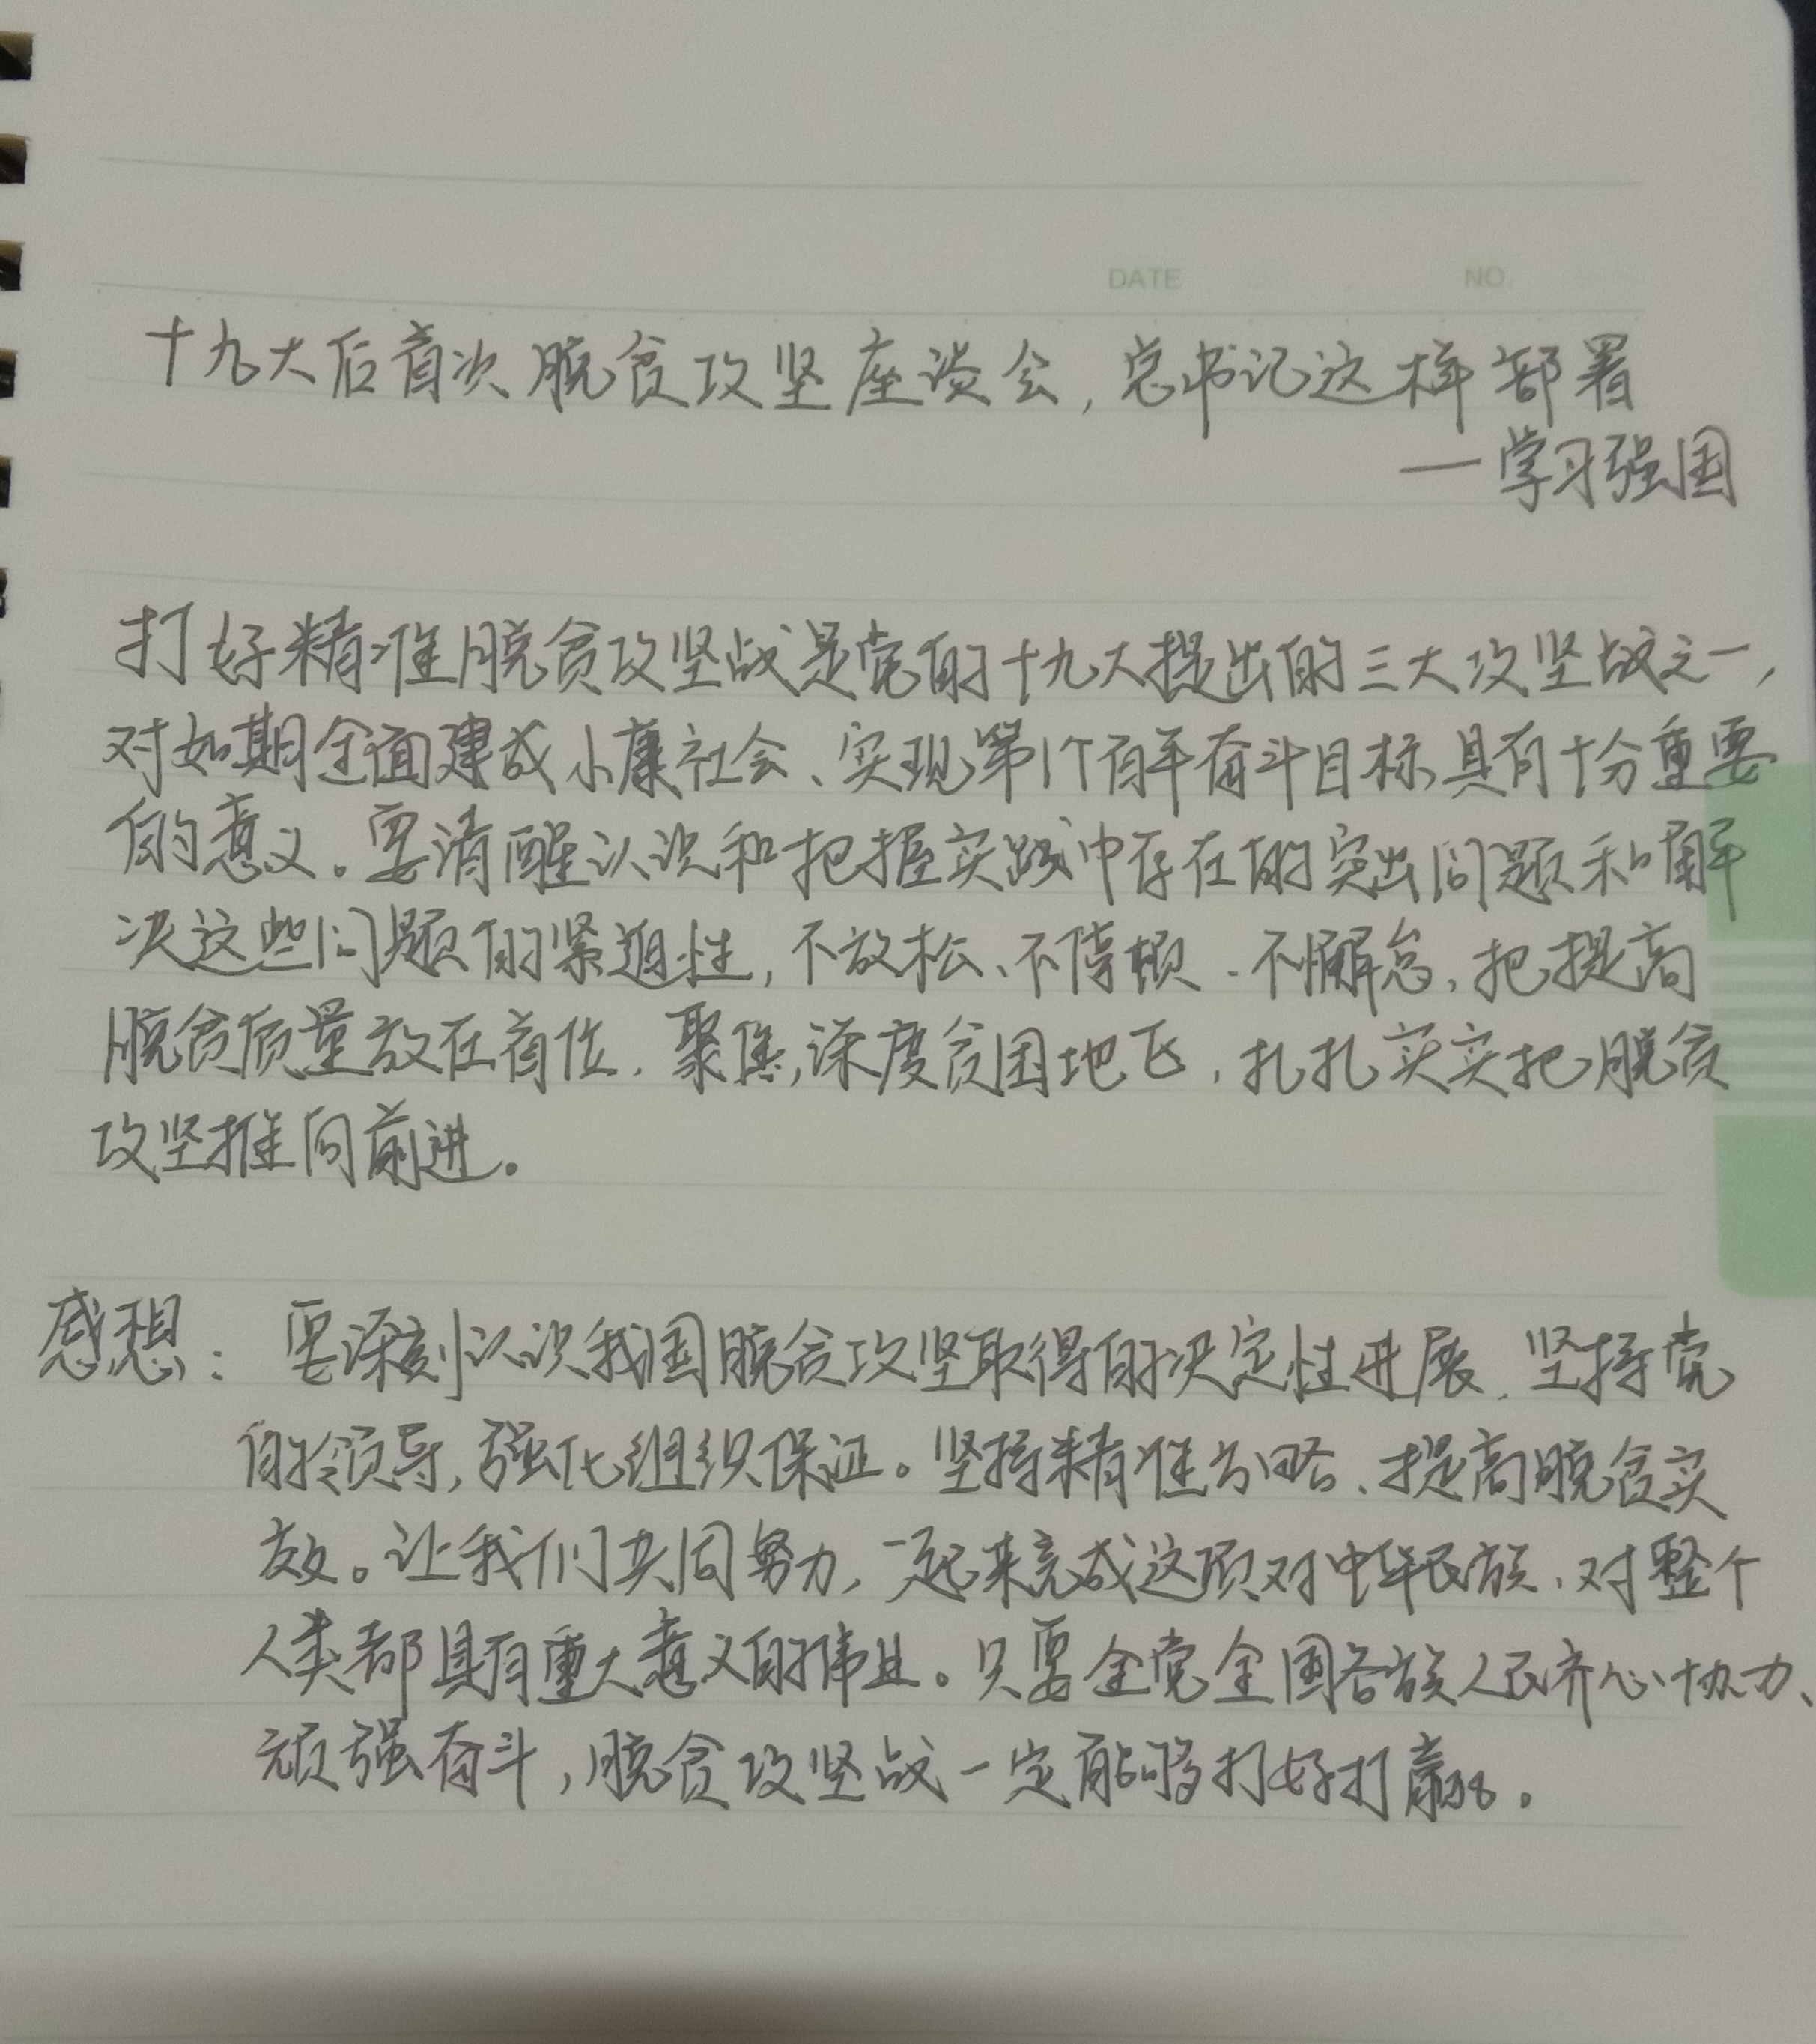 DATE NO.
十九大后首次脱贫攻坚座谈会,总书记这样部署
—学习强国
打好精准脱贫攻坚战是党的十九大提出的三大攻坚战之一,
对如期全面建成小康社会、实现第1个百年奋斗目标具有十分重要
的意义。要清醒认识和把握实践中存在的突出问题和解
决这些问题的紧迫性,不放松、不停顿、不懈怠,把提高
脱贫质量放在首位,聚焦深度贫困地区,扎扎实实把脱贫
攻坚推向前进。
感想:要深刻认识我国脱贫攻坚取得的决定性进展,坚持党
的领导,强化组织保证。坚持精准方略、提高脱贫实
效。让我们共同努力,一起来完成这项对中华民族、对整个
人类都具有重大意义的伟业。只要全党全国各族人民齐心协力、
顽强奋斗,脱贫攻坚战一定能够打好打赢。